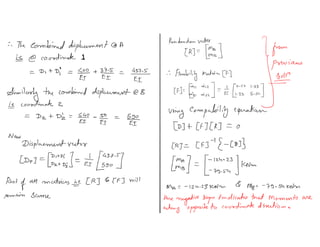 ∴ The Combined displacement @ A
is @ coordinate 1
= D1 + D1' = 600/EI + 37.5/EI = 637.5/EI
Similarly the combined displacement @ B
is coordinate 2
= D2 + D2' = 600/EI - /EI = /EI
Now
Displacement vector
[DP] = [D1+D1' D2+D2'] = 1/EI [637.5 ]
Rest of all matrices ie [R] & [F] will
remain same
Redundant vector
[R] = [MA MB]
∴ Flexibility Matrix [F]
[F] = = 1/EI
Using Compatibility equation
[D] + [F][R] = 0
[R] = [F]⁻¹ {-[D]}
[MA MB] = KNm
MA = KNm & MB = KNm
-ve negative sign indicates that moments are
acting opposite to coordinate direction.
from
previous